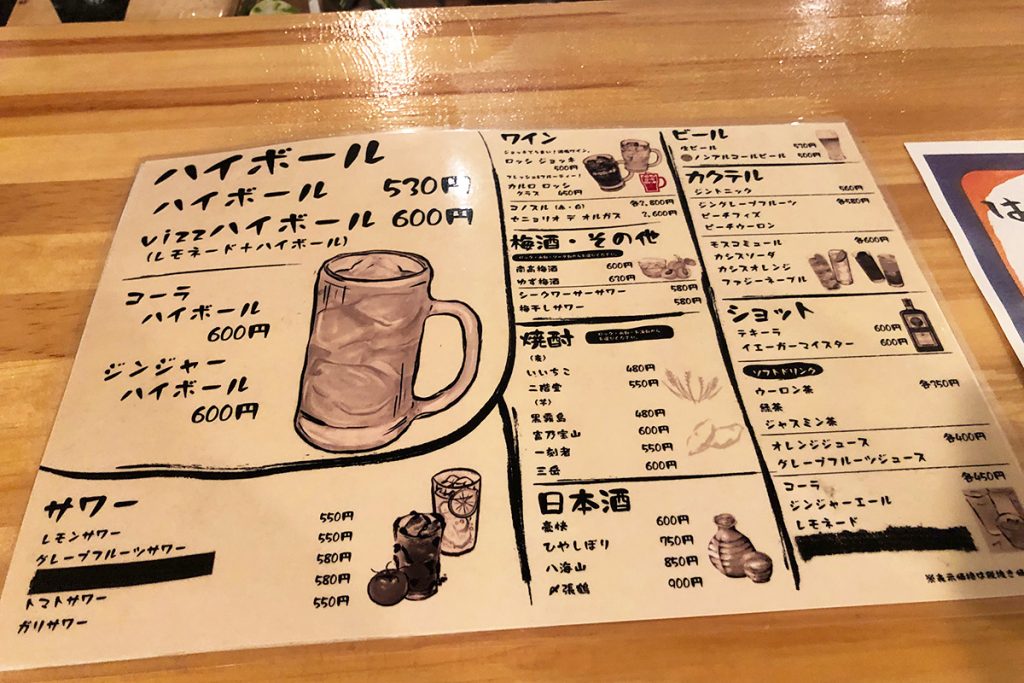 ハイボール
ハイボール 530円
vizzハイボール 600円
(レモネード+ハイボール)
コーラ
ハイボール
600円
ジンジャー
ハイボール
600円
サワー
レモンサワー 550円
グレープフルーツサワー 550円
580円
トマトサワー 580円
ガリサワー 550円
ワイン
ロッシ ジョッキ
500円
フレッシュ&フルーティー!
カルロ ロッシ
グラス 450円
コノスル (赤・白) 各2,800円
セニョリオ デ オルガス 2,600円
梅酒・その他
南高梅酒 600円
ゆず梅酒 630円
シークワーサーサワー 580円
梅干しサワー 580円
焼酎
(麦)
いいちこ 480円
二階堂 550円
(芋)
黒霧島 480円
富乃宝山 600円
一刻者 550円
三岳 600円
日本酒
豪快 600円
ひやしぼり 750円
八海山 850円
〆張鶴 900円
ビール
生ビール 570円
ノンアルコールビール 500円
カクテル
ジントニック 560円
ジングレープフルーツ 各580円
ピーチフィズ
ピーチウーロン
モスコミュール 各600円
カシスソーダ
カシスオレンジ
ファジーネーブル
ショット
テキーラ 600円
イエーガーマイスター 600円
ソフトドリンク
ウーロン茶 各350円
緑茶
ジャスミン茶
オレンジジュース 各400円
グレープフルーツジュース
コーラ 各450円
ジンジャーエール
レモネード
※表示価格は税抜き価
は